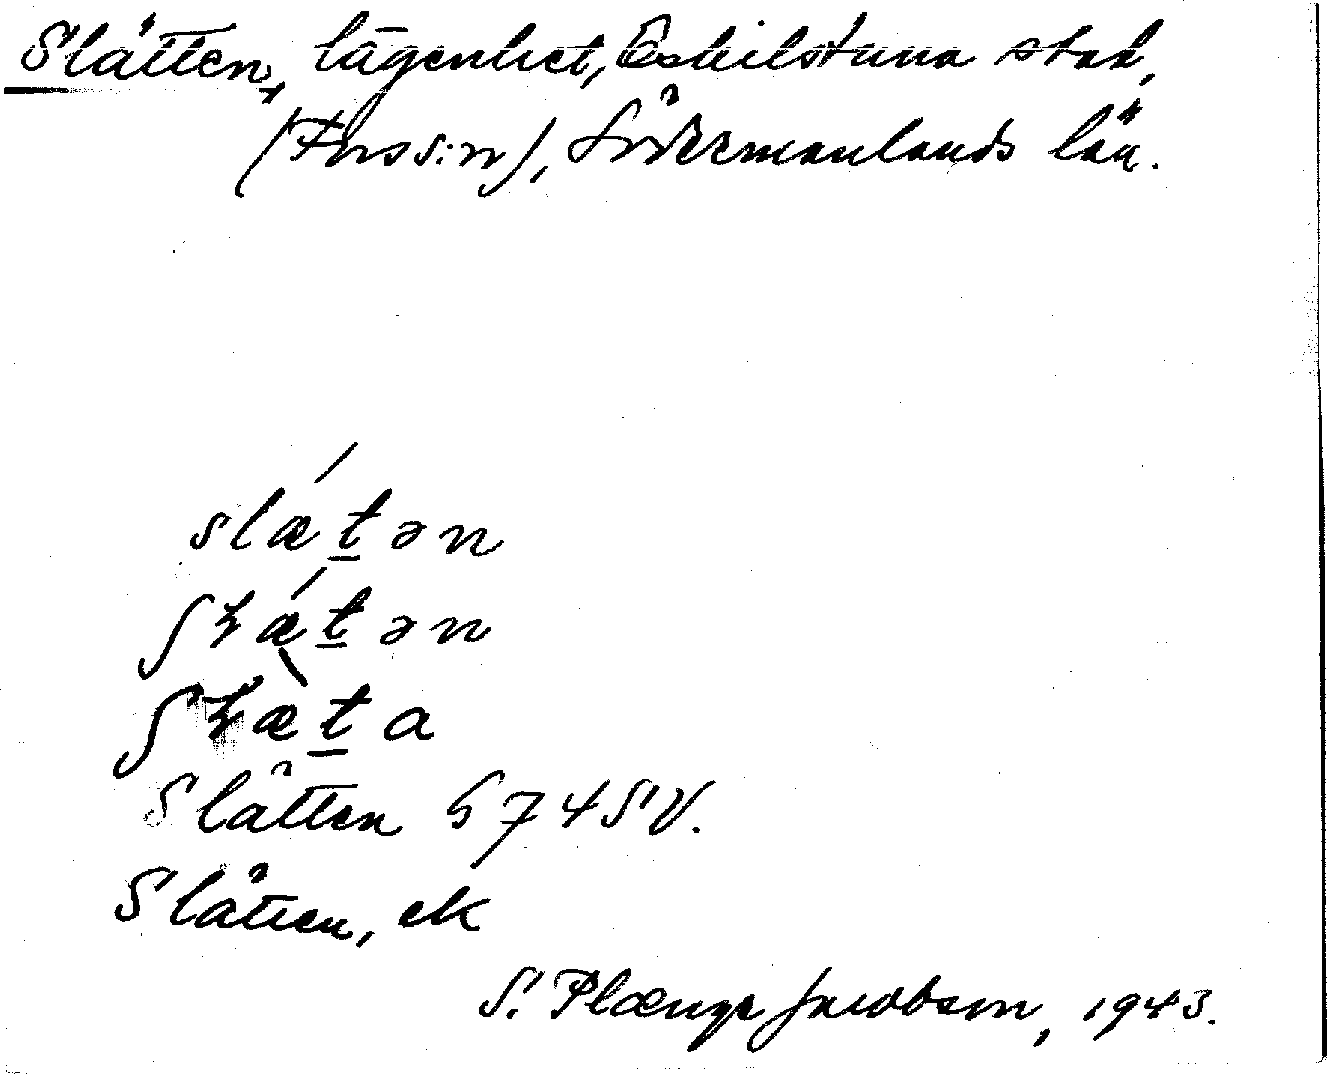 Slätten, lägenhet, Eskilstuna stad,
(Fors s:n), Södermanlands län.
slǽt̲ən
ʃɫǽt̲ən
ʃɫæ̀t̲a
Slätten 574SV.
Slätten, ek
S. Plænge Jacobson, 1943.